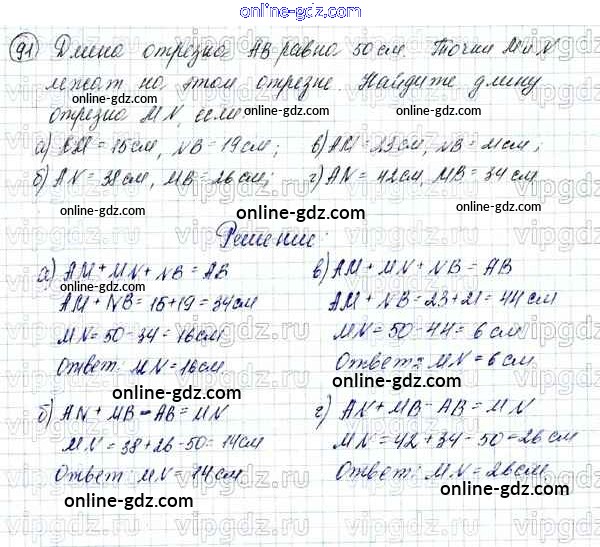 online-gdz.com
91) Длина отрезка AB равна 50 см. Точки M и N
лежат на этом отрезке. Найдите длину
отрезка MN, если
online-gdz.com
а) AM = 15 см, NB = 19 см;
в) AM = 23 см, NB = 21 см;
online-gdz.com
online-gdz.com
б) AN = 38 см, MB = 26 см;
г) AN = 42 см, MB = 34 см
online-gdz.com
online-gdz.com
online-gdz.com
Решение:
а) AM + MN + NB = AB
AM + NB = 15 + 19 = 34 см
MN = 50 - 34 = 16 см
Ответ: MN = 16 см
online-gdz.com
б) AN + MB - AB = MN
MN = 38 + 26 - 50 = 14 см
Ответ: MN = 14 см
online-gdz.com
в) AM + MN + NB = AB
AM + NB = 23 + 21 = 44 см
MN = 50 - 44 = 6 см
Ответ: MN = 6 см
online-gdz.com
г) AN + MB - AB = MN
MN = 42 + 34 - 50 = 26 см
Ответ: MN = 26 см
online-gdz.com